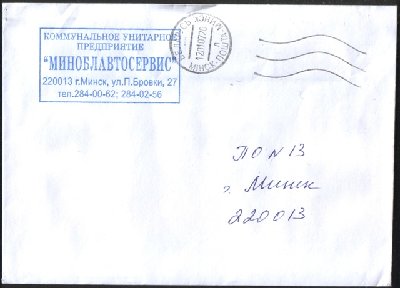 КОММУНАЛЬНОЕ УНИТАРНОЕ
ПРЕДПРИЯТИЕ
"МИНОБЛАВТОСЕРВИС"
220013 г.Минск, ул.П.Бровки, 27
тел.284-00-62; 284-02-56
МІНСК ПОШТА
ПО N 13
г. Минск
220013